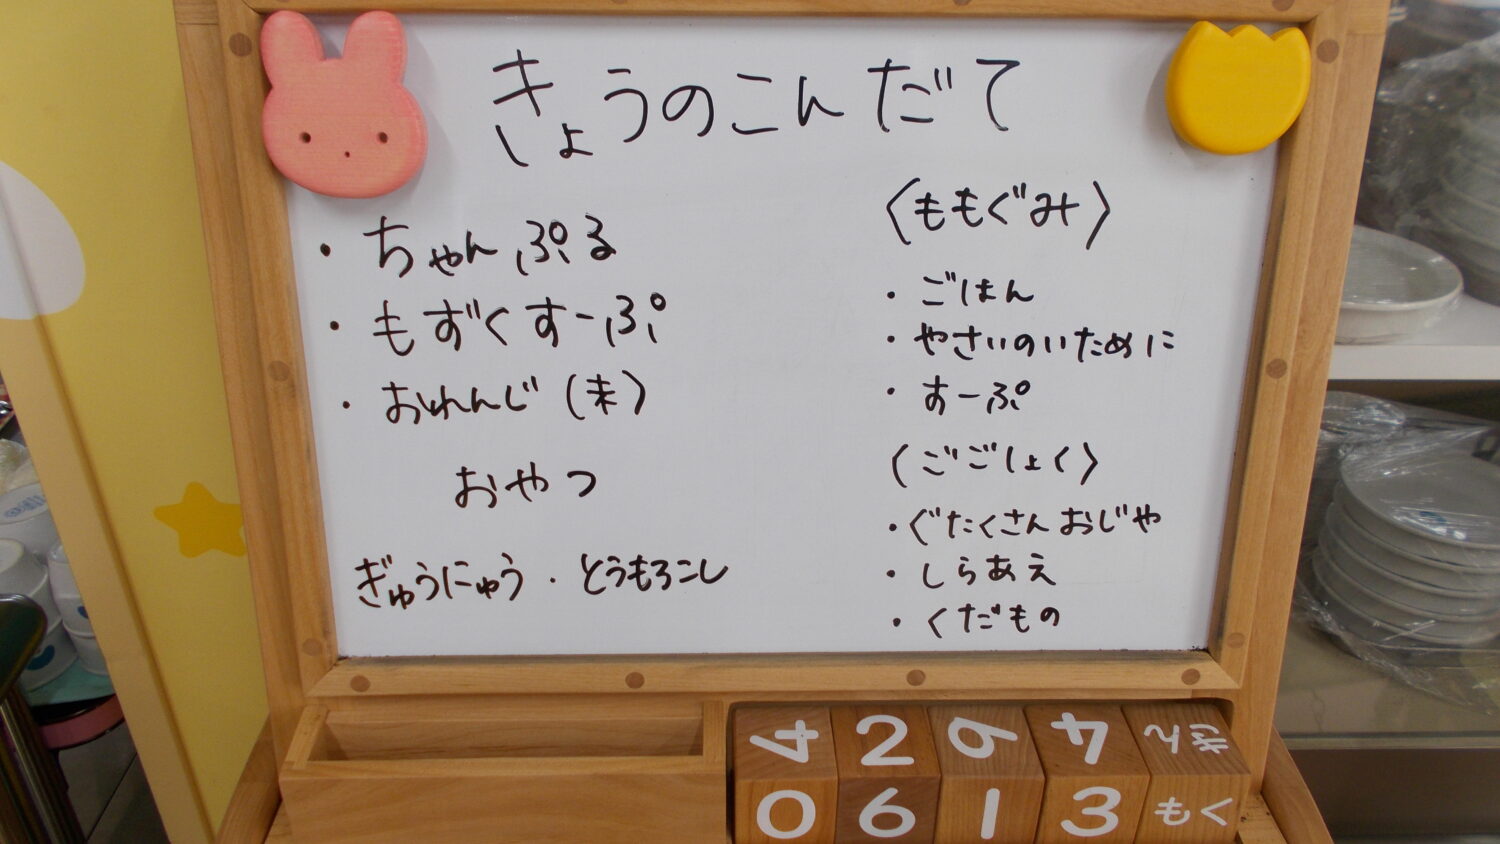 きょうのこんだて
・ちゃんぷる
・もずくすーぷ
・おれんじ(未)
おやつ
ぎゅうにゅう・とうもろこし
〈ももぐみ〉
・ごはん
・やさいのいために
・すーぷ
〈ごごしょく〉
・ぐたくさんおじや
・しらあえ
・くだもの
4 2 6 4 きん
0 6 1 3 もく